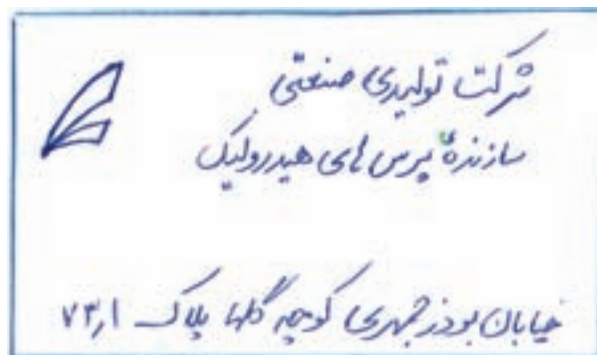 شرکت تولیدی صنعتی
سازندهٔ پرس های هیدرولیک
خیابان بوذرجمهری کوچه گلها پلاک ۷۳٫۱